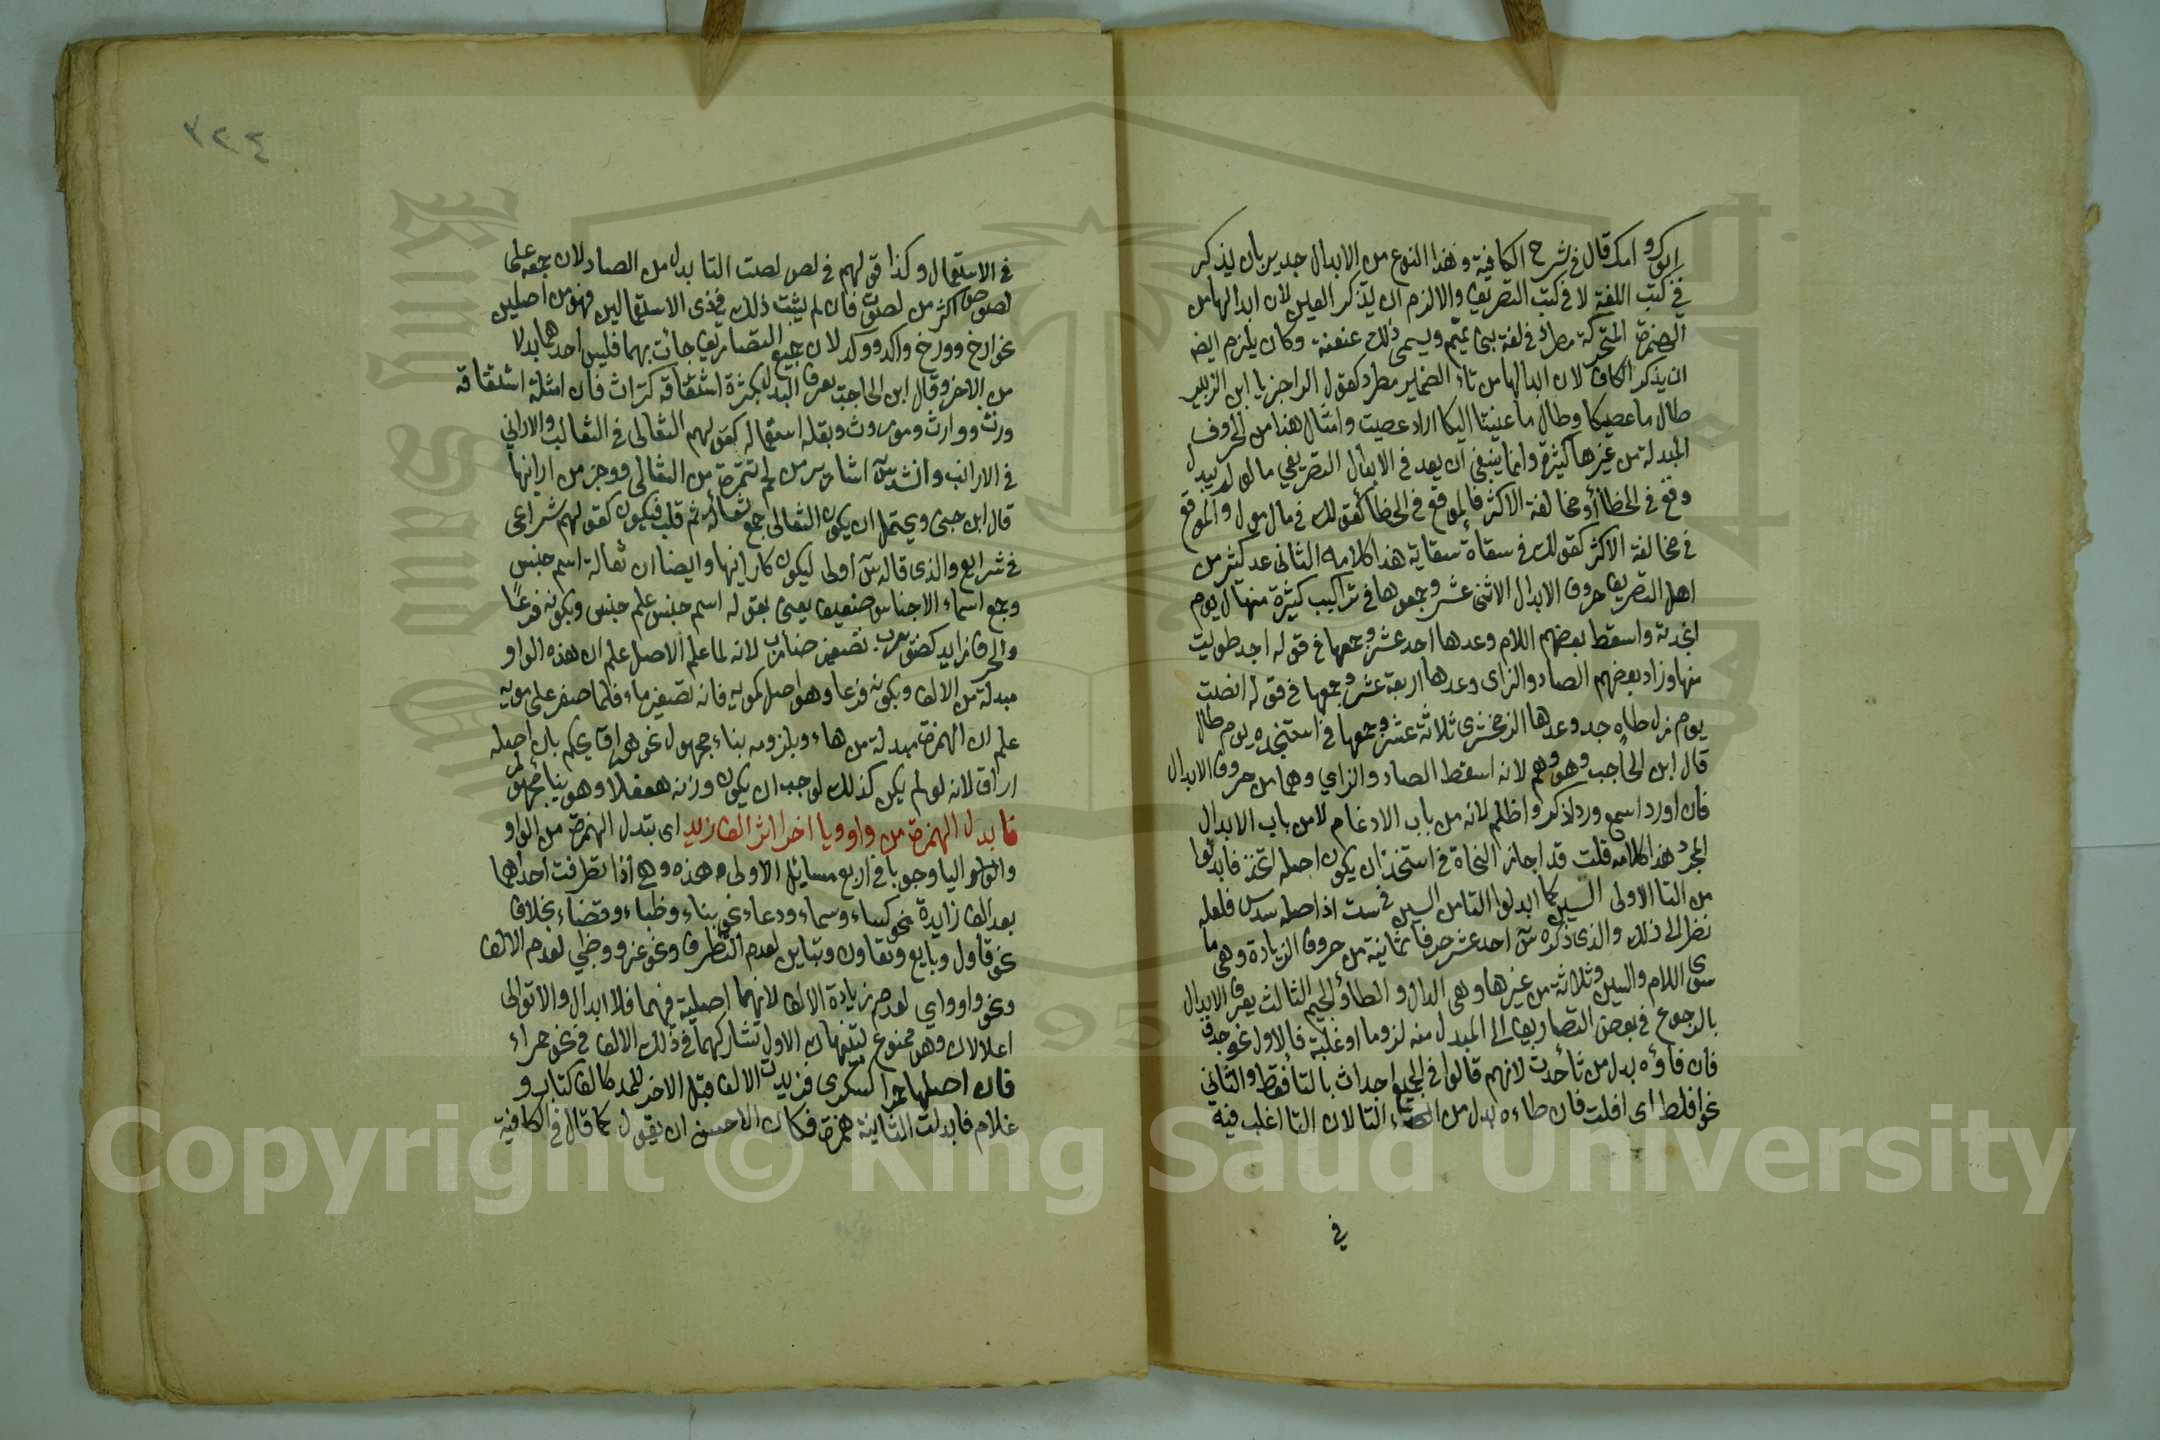 في كتب اللغة لا في كتب التصريف والالزم ان يذكر العين لان ابدالها من
الهمزة المتحركة مطرد في لغة بني تميم ويسمى ذلك عنعنة وكان يلزم ايضا
ان يذكر الكاف لان ابدالها من تاء الضمير مطرد كقول الراجز يا ابن الزبير
طال ما عصيكا وطال ما عنيتنا اليكا اراد عصيت وامثال هذا من الحروف
المبدلة من غيرها كثيرة وانما ينبغي ان يعد في الابدال التصريفي ما لو لم يبدل
وقع في الخطا او مخالفة الاكثر فالموقع في الخطا كقولك في مال مول والموقع
في مخالفة الاكثر كقولك في سقاة سقاية هذا كلامه الثاني عد كثير من
اهل التصريف حروف الابدال الاثنى عشر وجمعوها في تراكيب كثيرة منها ال يوم
انجدته واسقط بعضهم اللام وعدها احد عشر وجمعها في قوله اجد طويت
منها وزاد بعضهم الصاد والزاى وعدها اربعة عشر وجمعها في قوله انصت
يوم زل طاه جد وعدها الزمخشري ثلاثة عشر وجمعها في استنجده يوم طال
قال ابن الحاجب وهو وهم لانه اسقط الصاد والزاي وهما من حروف الابدال
فان اورد اسمع ورد اذكر واظلم لانه من باب الادغام لا من باب الابدال
المجرد هذا كلامه قلت قد اجاز النحاة في استخذ ان يكون اصله اتخذ فابدلوا
من التا الاولى السين كما ابدلوا التا من السين في ست اذ اصله سدس فلعله
نظر الى ذلك والذى ذكره س احد عشر حرفا ثمانية من حروف الزيادة وهى ما
سوى اللام والسين وثلاثة من غيرها وهى الدال والطاء والجيم الثالث يعرف الابدال
بالرجوع في بعض التصاريف الى المبدل منه لزوما او غلبة فالاول نحو جدف
فان فاؤه بدل من ثا جدث لانهم قالوا في الجمع اجداث بالثا فقط والثاني
نحو افلط اى افلت فان طاءه بدل من التا لان التا اغلب فيه
في
٣٢٤
في الاستعمال وكذا قولهم في لص لصت التا بدل من الصاد لان جمعه على
لصوص اكثر من لصوت فان لم يثبت ذلك في ذى الاستعمالين فهو من اصلين
نحو ارخ وورخ واكد ووكد لان جميع التصاريف جاءت بهما فليس احدهما بدلا
من الاخر وقال ابن الحاجب يعرف البدل بكثرة اشتقاقه كتراث فان امثلة اشتقاقه
ورث ووارث وموروث وبقلة استعماله كقولهم الثعالى في الثعالب والارانى
في الارانب وانشد س اشارير من لحم تتمره من الثعالى ووخز من ارانيها
قال ابن جنى ويحتمل ان يكون الثعالى جمع ثعالة ثم قلب فيكون كقولهم شراعى
في شرايع والذى قاله س اولى ليكون كارانيها وايضا ان ثعالة اسم جنس
وجمع اسماء الاجناس ضعيف يعنى بقوله اسم جنس علم جنس وبكونه فرعا
والحرف زايد كضويرب تصغير ضارب لانه لما علم الاصل علم ان هذه الواو
مبدلة من الالف وبكونه فرعا وهو اصل كمويه فانه تصغير ماء فلما صغر على مويه
علم ان الهمزة مبدلة من هاء وبلزوم بناء مجهول نحو هراق يحكم بان اصله
اراق لانه لو لم يكن كذلك لوجب ان يكون وزنه هفعلا وهو بنا مجهول
فابدل الهمزة من واو ويا اخرا اثر الف زيد اى تبدل الهمزة من الواو
واليا وجوبا في اربع مسايل الاولى هذه وهي اذا تطرفت احداهما
بعد الف زايدة نحو كساء وسماء ودعاء ونحو بناء وظباء وقضاء بخلاف
نحو قاول وبايع وتعاون وتباين لعدم التطرف ونحو غزو وظبي لعدم الالف
ونحو واو واي لعدم زيادة الالف لانها اصلية فيهما فلا ابدال والا توالى
اعلالان وهو ممنوع تنبيهان الاول تشاركهما في ذلك الالف في نحو حمراء
فان اصلها حمرا كسكرى فزيدت الالف قبل الاخر للمد كالف كتاب و
غلام فابدلت الثانية همزة فكان الاحسن ان يقول كما قال في الكافية